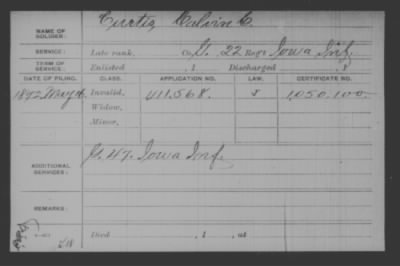 NAME OF SOLDIER: Curtis, Calvin C.
SERVICE: Late rank, Co. G, 22 Reg't Iowa Inf.
TERM OF SERVICE: Enlisted , 1 Discharged , 1
DATE OF FILING. CLASS. APPLICATION NO. LAW. CERTIFICATE NO.
1892 May Invalid, 1,050,100
Widow,
Minor,
ADDITIONAL SERVICES: 47. Iowa Inf.
REMARKS:
Died , 1 , at